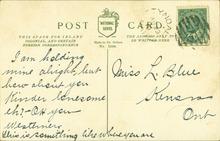 POST CARD.
THIS SPACE FOR INLAND
COLONIAL AND CERTAIN
FOREIGN CORRESPONDENCE
THE ADDRESS ONLY TO
BE WRITTEN HERE
I am holding
mine alight, but
how about you
Kinder lonesome
eh? - Oh you
Westerner
this is something like where you are
Miss L Blue
Kenora
Ont